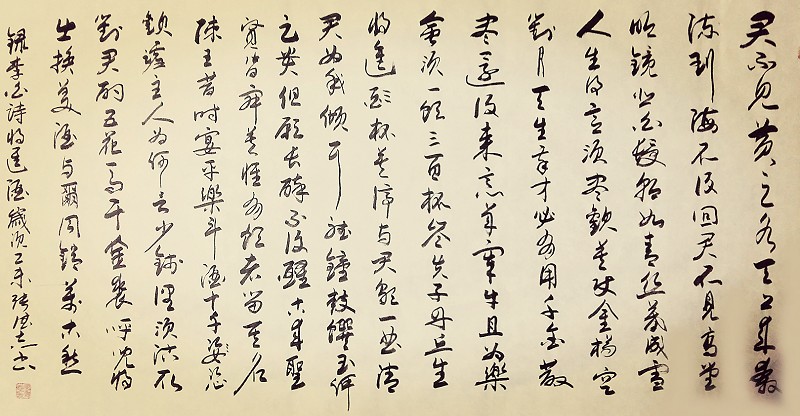 君不見黃之水天上來奔
流到海不復回君不見高堂
明鏡悲白髮朝如青絲暮成雪
人生得意須盡歡莫使金樽空
對月天生我才必有用千金散
盡還復來烹羊宰牛且為樂
會須一飲三百杯岑夫子丹丘生
將進酒杯莫停與君歌一曲請
君為我傾耳聽鐘鼓饌玉何
足貴但願長醉不復醒古來聖
賢皆寂莫惟有飲者留其名
陳王昔時宴平樂斗酒十千恣
歡謔主人為何言少錢徑須沽取
對君酌五花馬千金裘呼兒將
出換美酒與爾同銷萬古愁
錄李白詩將進酒歲次乙未張書